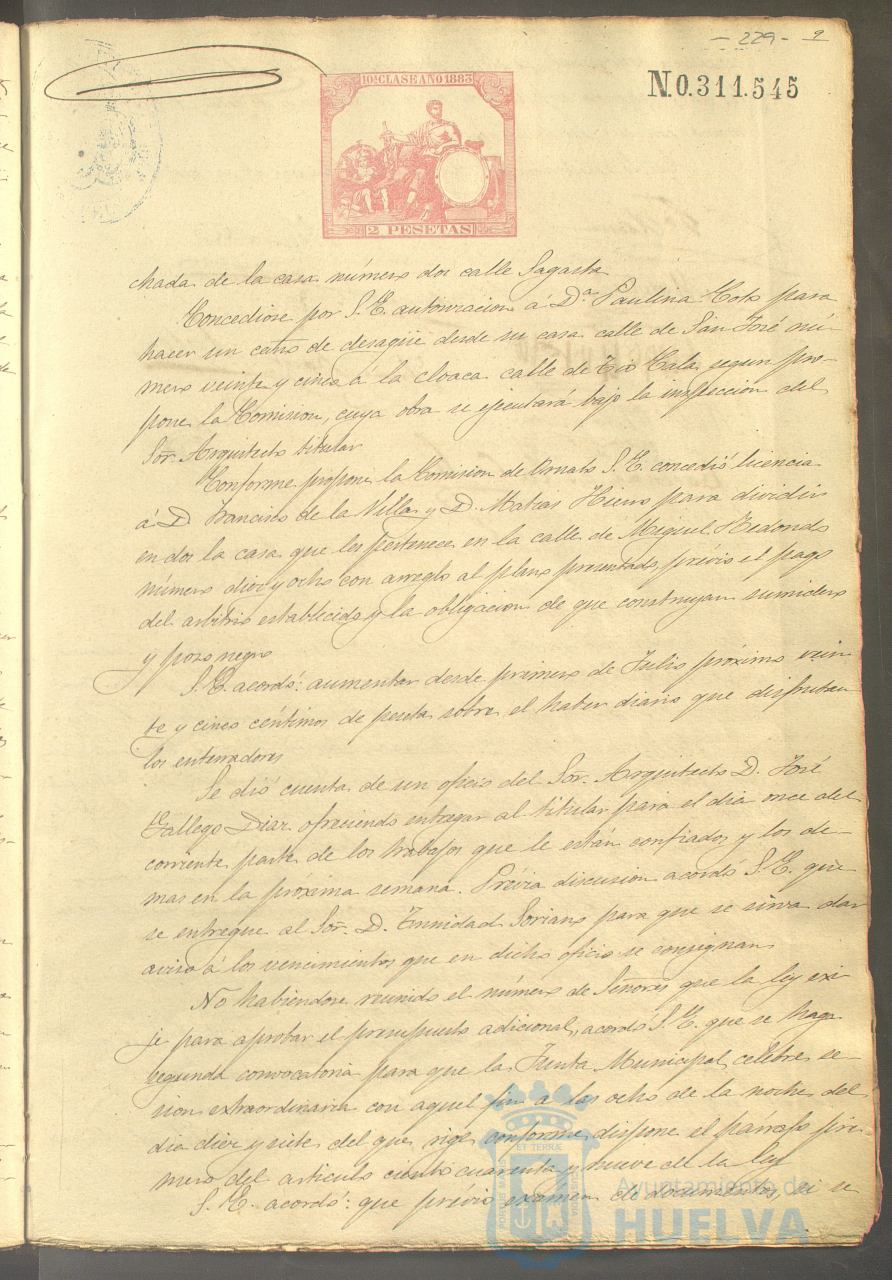 - 229 - 9
N.0.311.545
10ª CLASE AÑO 1883
2 PESETAS
chada de la casa número dos calle Sagasta
Concediose por S.E. autorizacion á Dª Paulina Coto para
hacer un caño de desagüe desde su casa calle de San José nú-
mero veinte y cinco á la cloaca calle de Tres Calas, segun pro-
pone la Comision, cuya obra se ejecutará bajo la inspeccion del
Sor. Arquitecto titular
Conforme propone la Comision de Ornato S.E. concedió licencia
á D Francisco de la Villa y D. Matias Hierro para dividir
en dos la casa que les pertenece en la calle de Miguel Redondo
número diez y ocho con arreglo al plano presentado, prévio el pago
del arbitrio establecido y la obligacion de que construyan sumidero
y pozo negro
S.E. acordó: aumentar desde primero de Julio próximo vein-
te y cinco céntimos de peseta sobre el haber diario que disfrutan
los enterradores
Se dió cuenta de un oficio del Sor. Arquitecto D. José
Gallego Diaz ofreciendo entregar al titular para el dia once del
corriente parte de los trabajos que le están confiados y los de-
mas en la próxima semana. Prévia discusion acordó S.E. que
se entregue al Sor. D. Trinidad Soriano para que se sirva dar
aviso á los vencimientos que en dicho oficio se consignan
No habiendose reunido el número de Señores que la ley exi-
je para aprobar el presupuesto adicional, acordó S.E. que se haga
segunda convocatoria para que la Junta Municipal, celebre se-
sion extraordinaria con aquel fin a las ocho de la noche del
dia diez y siete del que rige conforme dispone el párrafo pri-
mero del articulo ciento cuarenta y nueve de la ley
S.E. acordó: que prévio exámen de documentos, si se
Ayuntamiento de
HUELVA